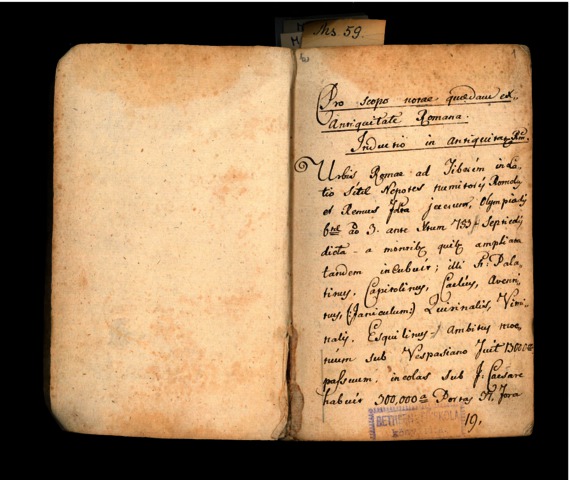 Ms. 59.
1
Pro scopo notae quaedam ex
Antiquitate Romana.
Inductio in Antiquitat. Rom.
Urbis Romae ad Tiberim in La-
tio siti Nepotes Numitorij Romul
et Remus jecerunt, Olympiad
6ta ao 3. ante Xtum 753
dicta - a montib quib ampliata
tandem incubuit; illi st. Pala-
tinus, Capitolinus, Caelius, Aven-
nus, (Janiculum) Quirinalis, Vimi-
nalis, Esquilinus - Ambitus moe-
nium sub Vespasiano fuit
passuum, incolas sub J. Caesare
habuit 300,000 Portas
19.